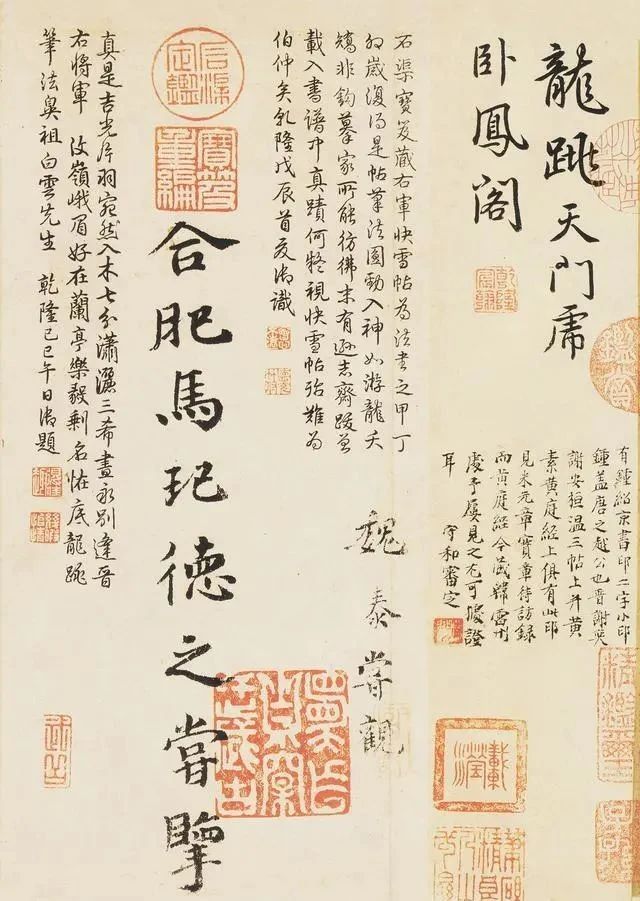 龍跳天門虎
卧鳳閣
乾隆宸翰
有鍾紹京書印二字小印
鍾蓋唐之越公也晋謝奕
謝安桓温三帖上并黄
素黄庭經上俱有此印
見米元章寶章待訪録
而黄庭經今藏韓雷州
處予屢見之尤可據證
耳 守和審定
石渠寶笈藏右軍快雪帖為法書之甲丁
卯歲復得是帖筆法圓勁入神如游龍夭
矯非鈎摹家所能彷彿末有遜志齋跋曾
載入書譜中真蹟何疑視快雪帖殆難為
伯仲矣乾隆戊辰首夏御識
魏泰嘗觀
石渠定鑑
寶笈重編
合肥馬玘德之嘗
真是吉光片羽宛然入木七分瀟灑三希晝永別逢晋
右將軍 汶嶺峨眉好在蘭亭樂毅剩名恠底龍跳
筆法奥祖白雲先生 乾隆己巳午日御題